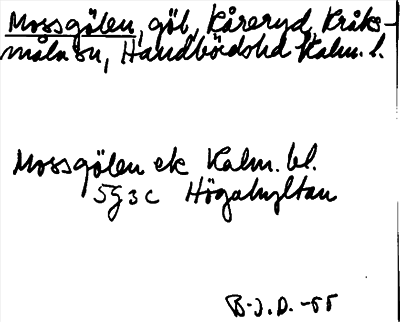 Mossgölen, göl, Kåreryd, Kråks-
måla sn, Handbörds hd Kalm. l.
Mossgölen ek Kalm. bl.
5G3c Högahyltan
B.J.D. -55